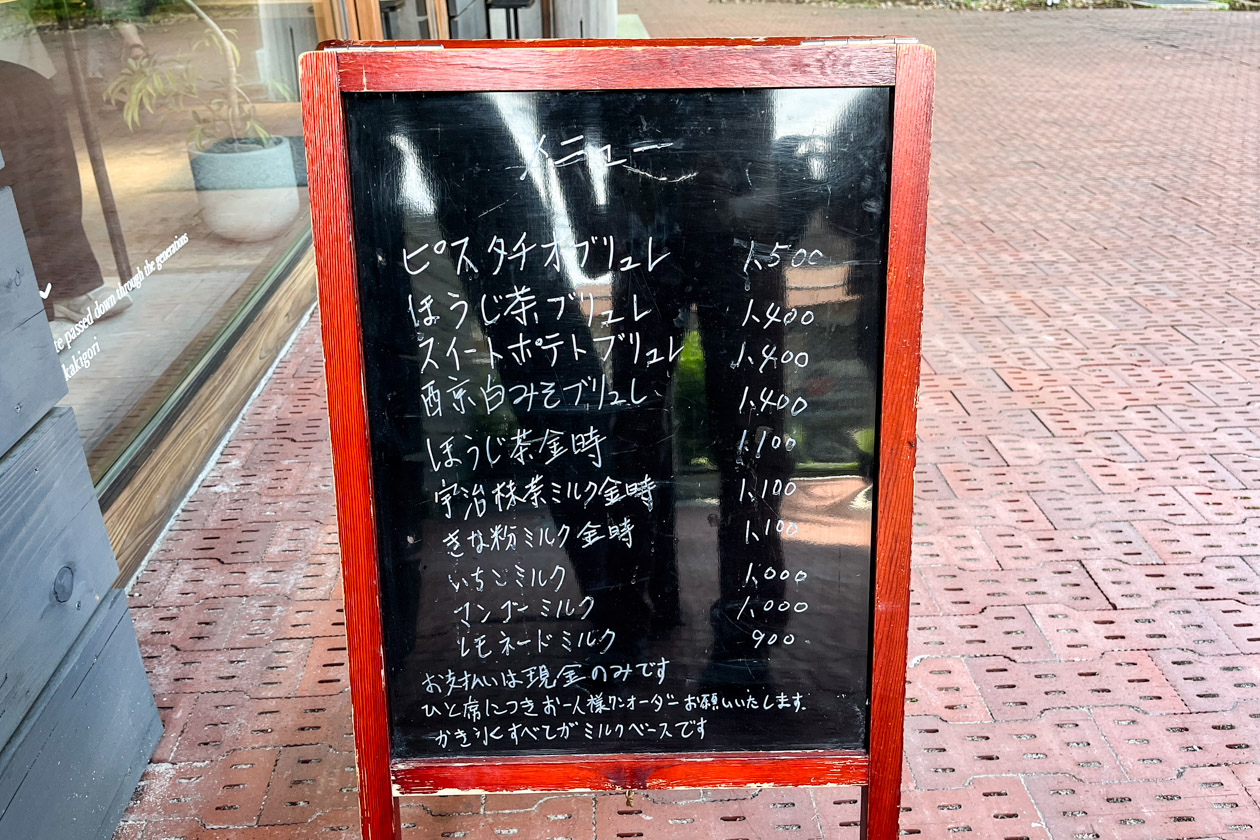 メニュー
ピスタチオブリュレ 1,500
ほうじ茶ブリュレ 1,400
スイートポテトブリュレ 1,400
西京白みそブリュレ 1,400
ほうじ茶金時 1,100
宇治抹茶ミルク金時 1,100
きな粉ミルク金時 1,100
いちごミルク 1,000
マンゴーミルク 1,000
レモネードミルク 900
お支払いは現金のみです
ひと席につきお一人様ワンオーダーお願いいたします.
かき氷すべてがミルクベースです
passed down through the generations
kakigori